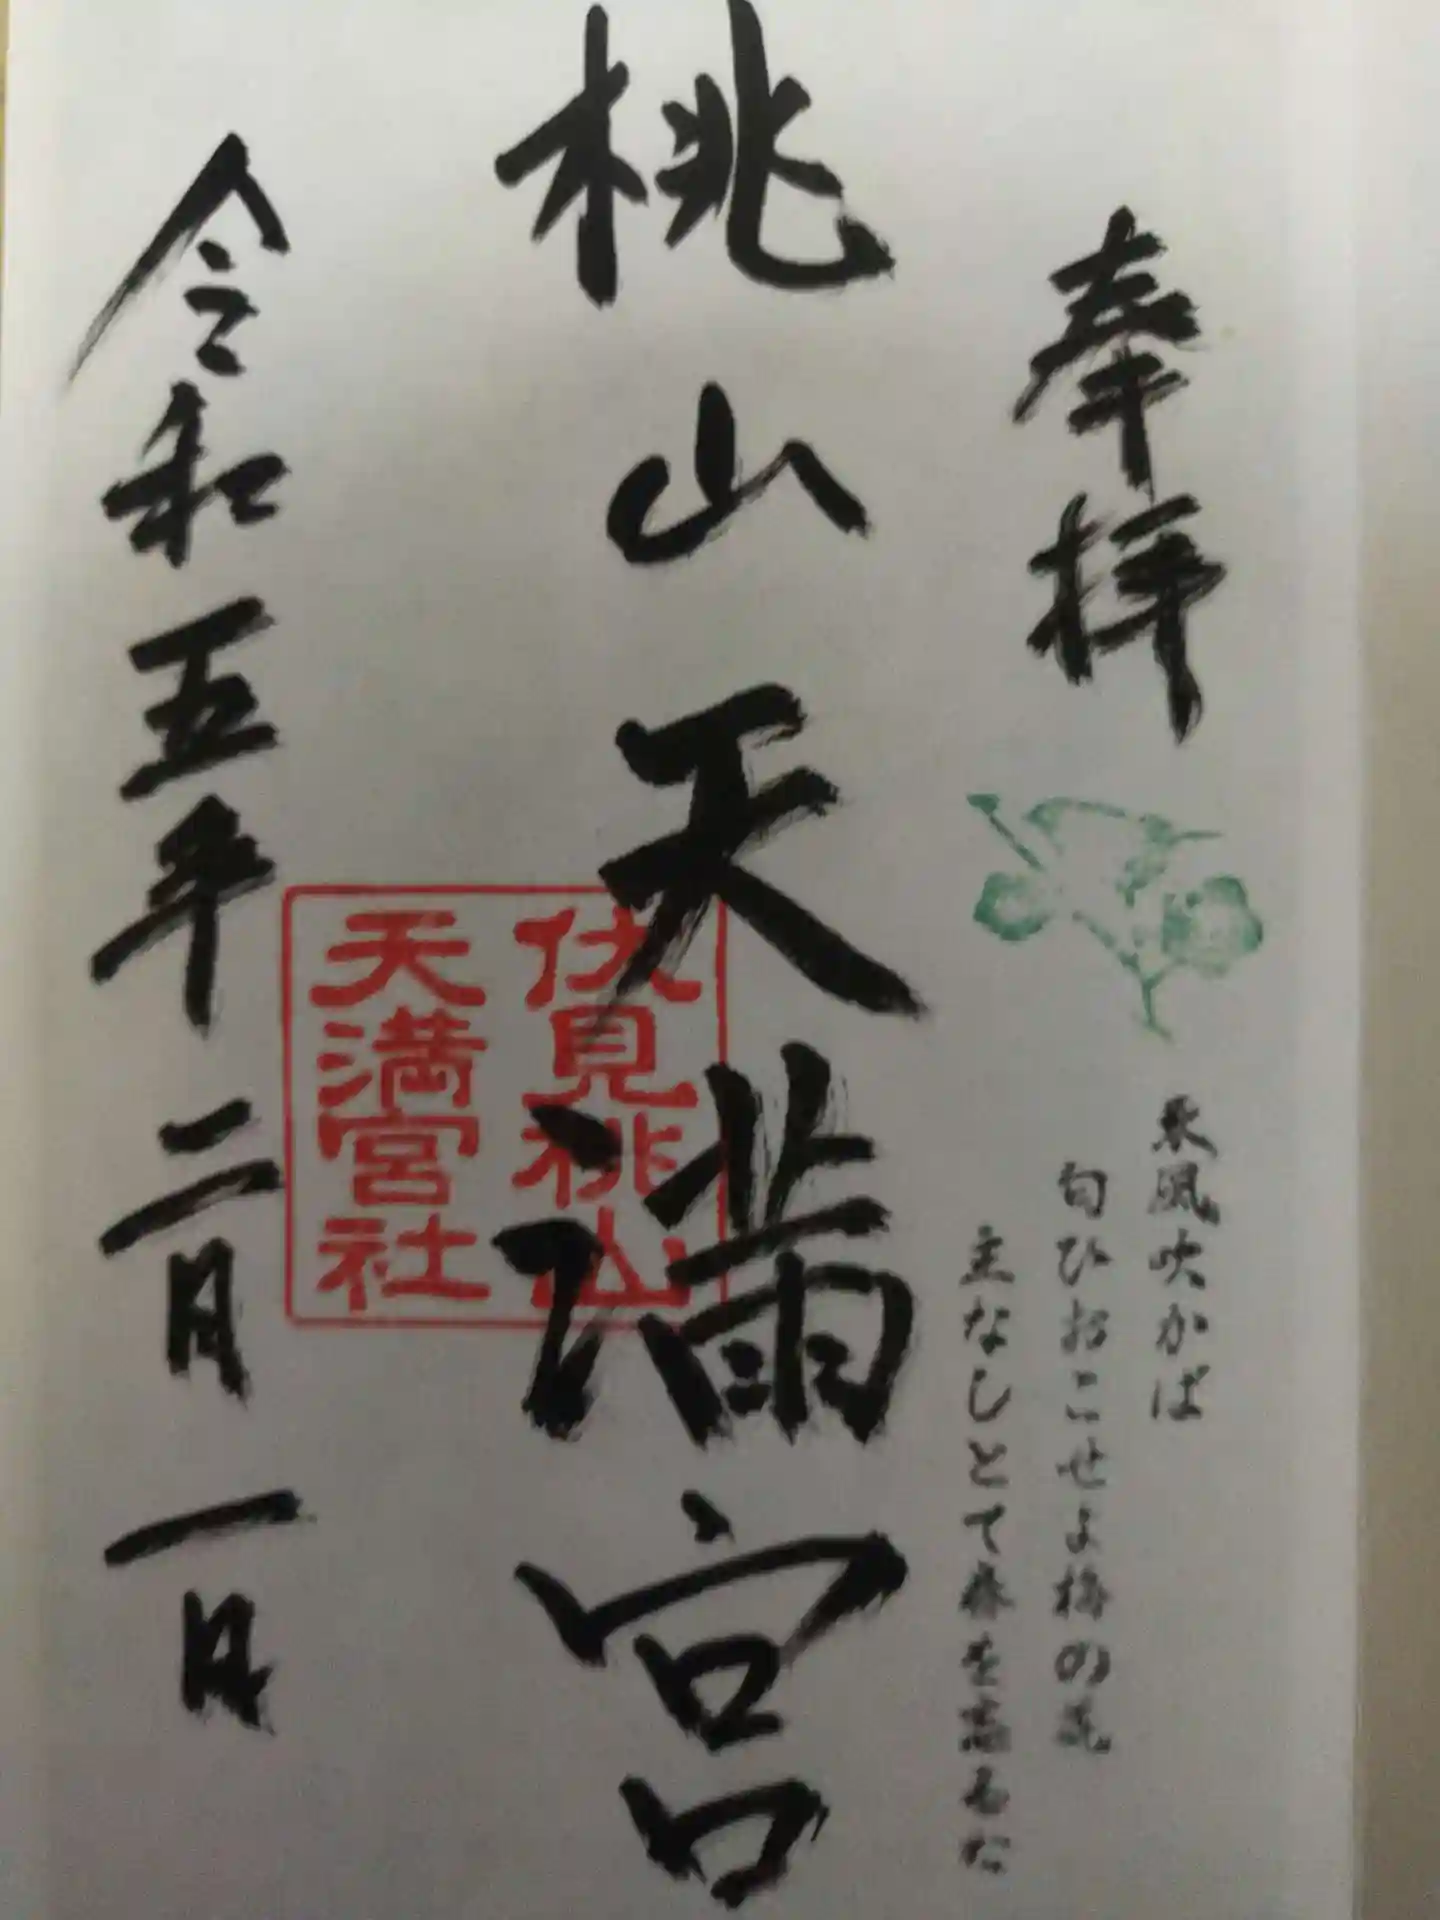 奉拝
東風吹かば
匂ひおこせよ梅の花
主なしとて春を忘るな
桃山天満宮
伏見桃山
天満宮社
令和五年二月一日